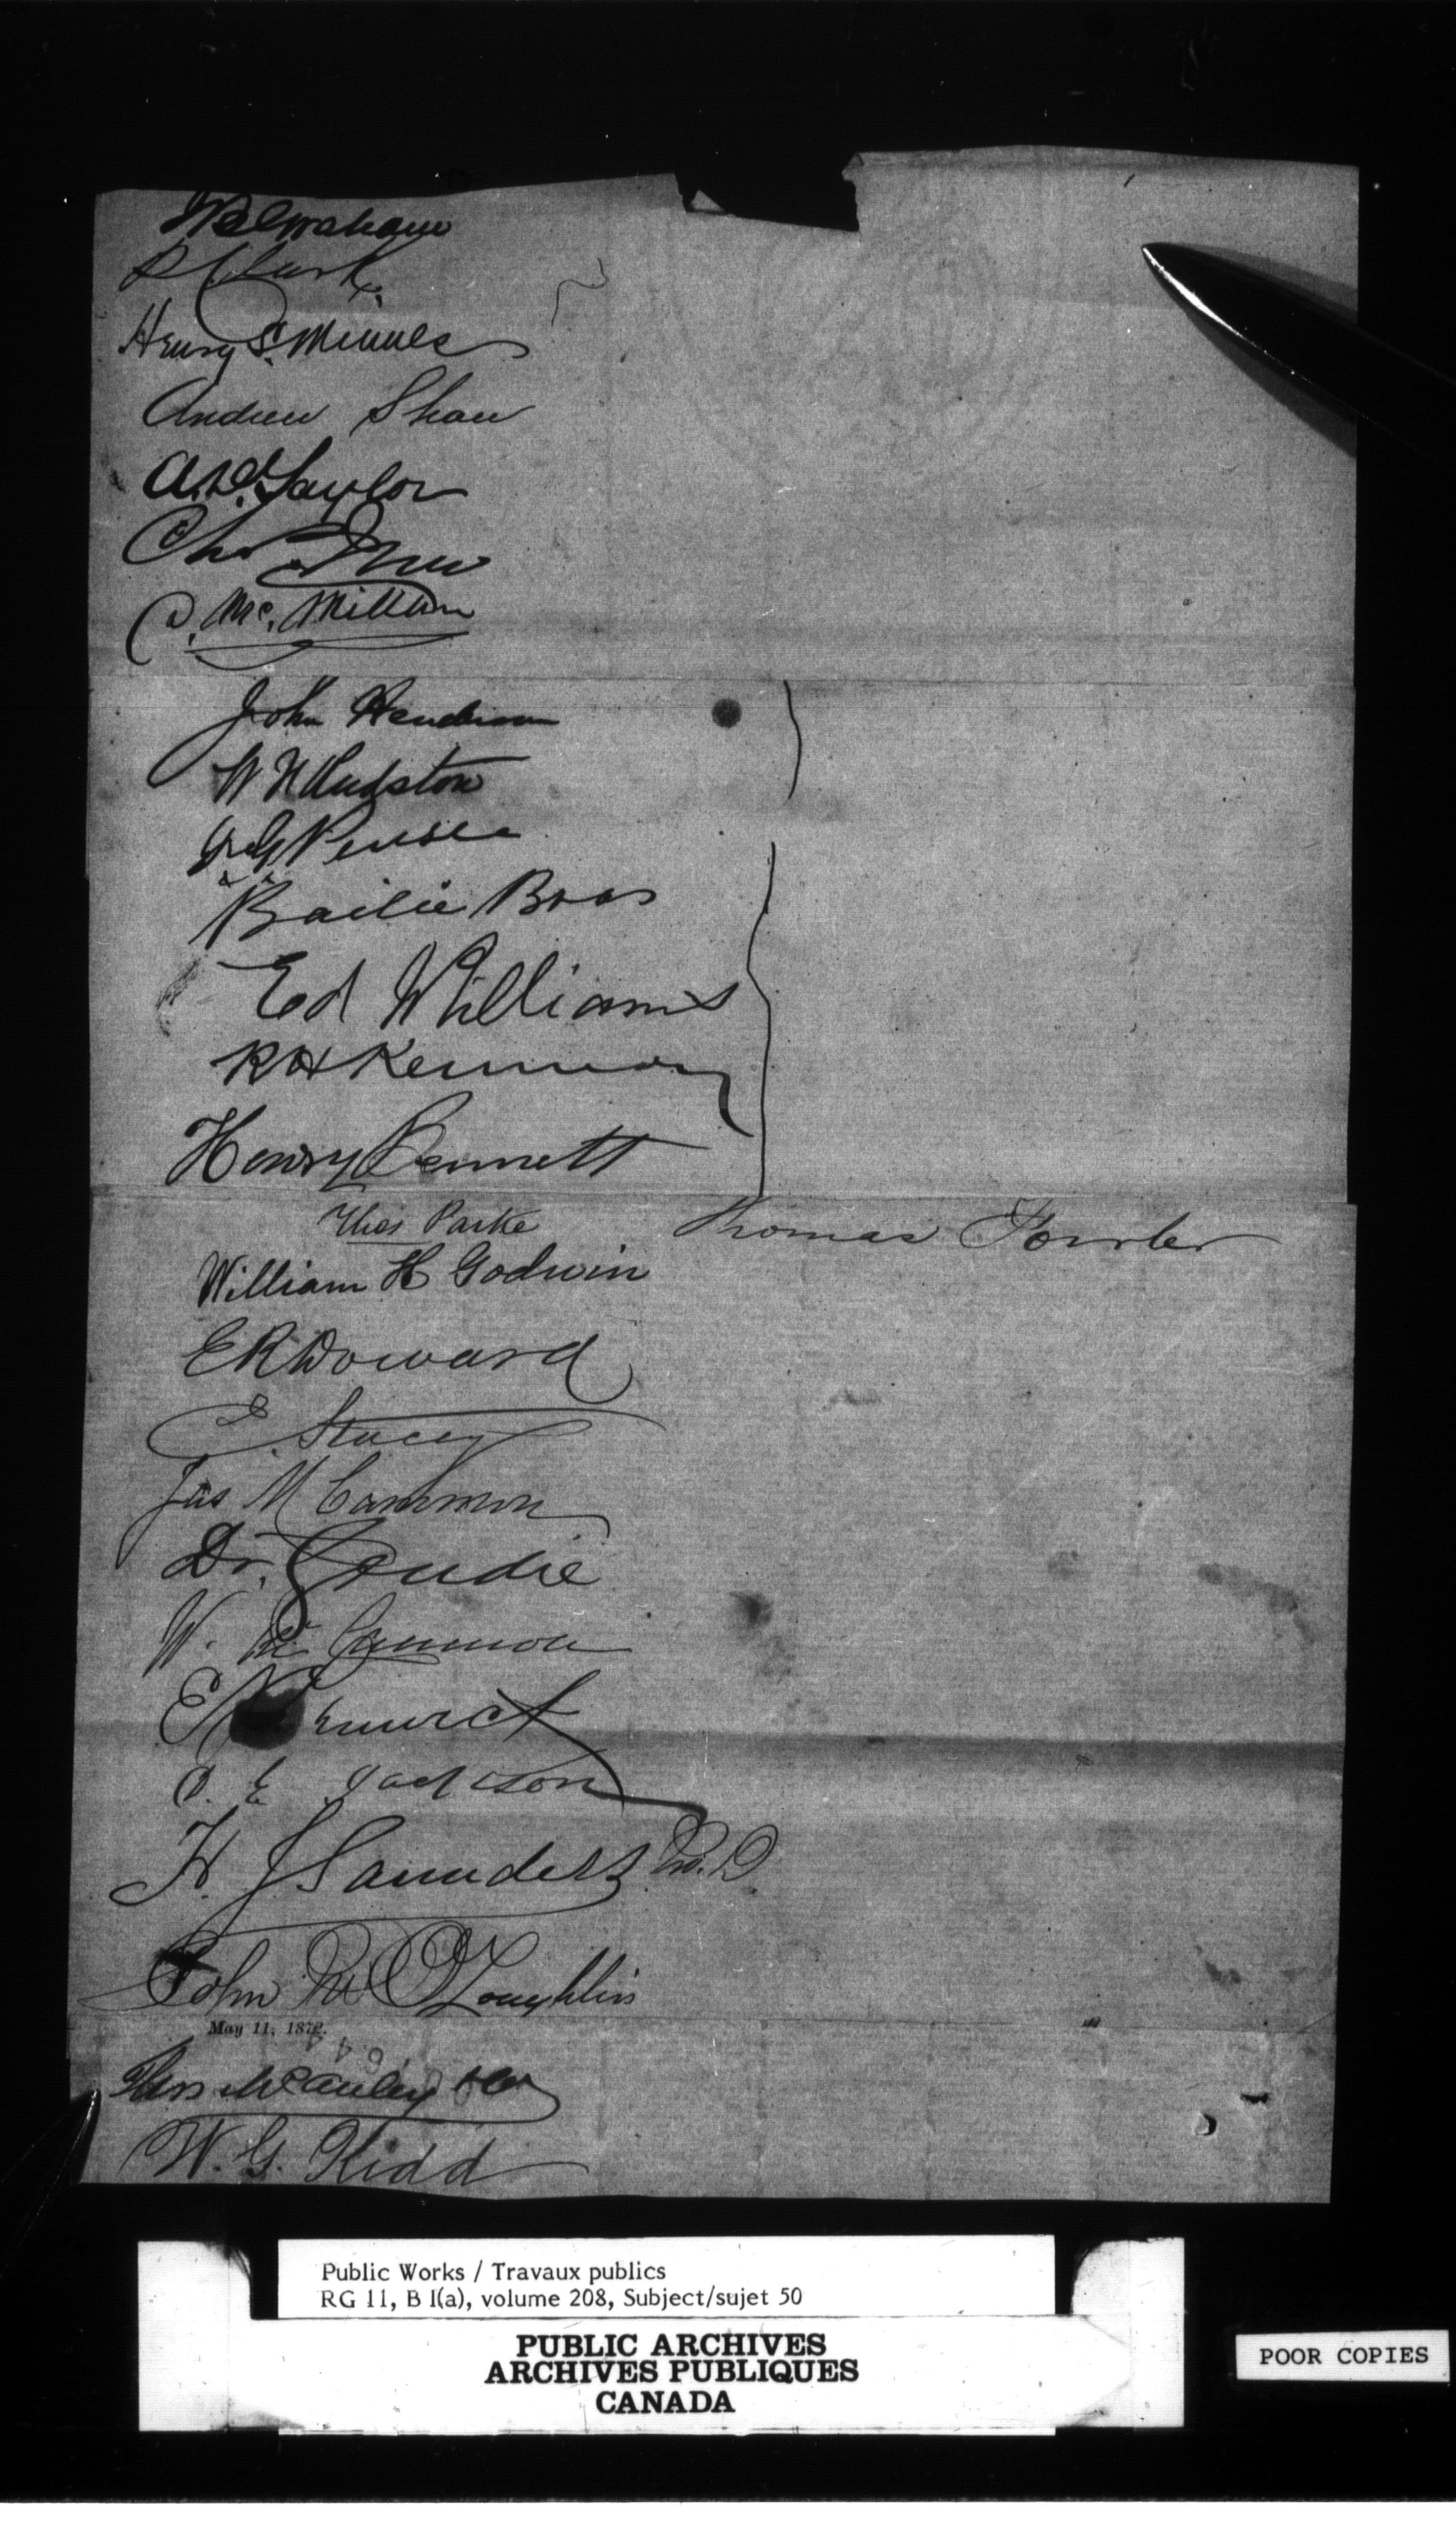 Clark
Henry S. Minnes
Andrew Shaw
A. D. Taylor
Chs Drew
D. Mc. Millan
John Henderson
W H Hudston
Bailie Boas
Ed Williams
R H Kennedy
Henry Bennett
Thos Parke Thomas Fowler
William H Godwin
E R Doward
E. Stacey
Jas McCammon
Dr. Goudie
W. McCammon
E
D. E Jackson
H. J Saunders M.D.
John M O'Loughlin
May 11, 1872.
Thos McAuley
W. G. Kidd
Public Works / Travaux publics
RG 11, B 1(a), volume 208, Subject/sujet 50
PUBLIC ARCHIVES
ARCHIVES PUBLIQUES
CANADA
POOR COPIES